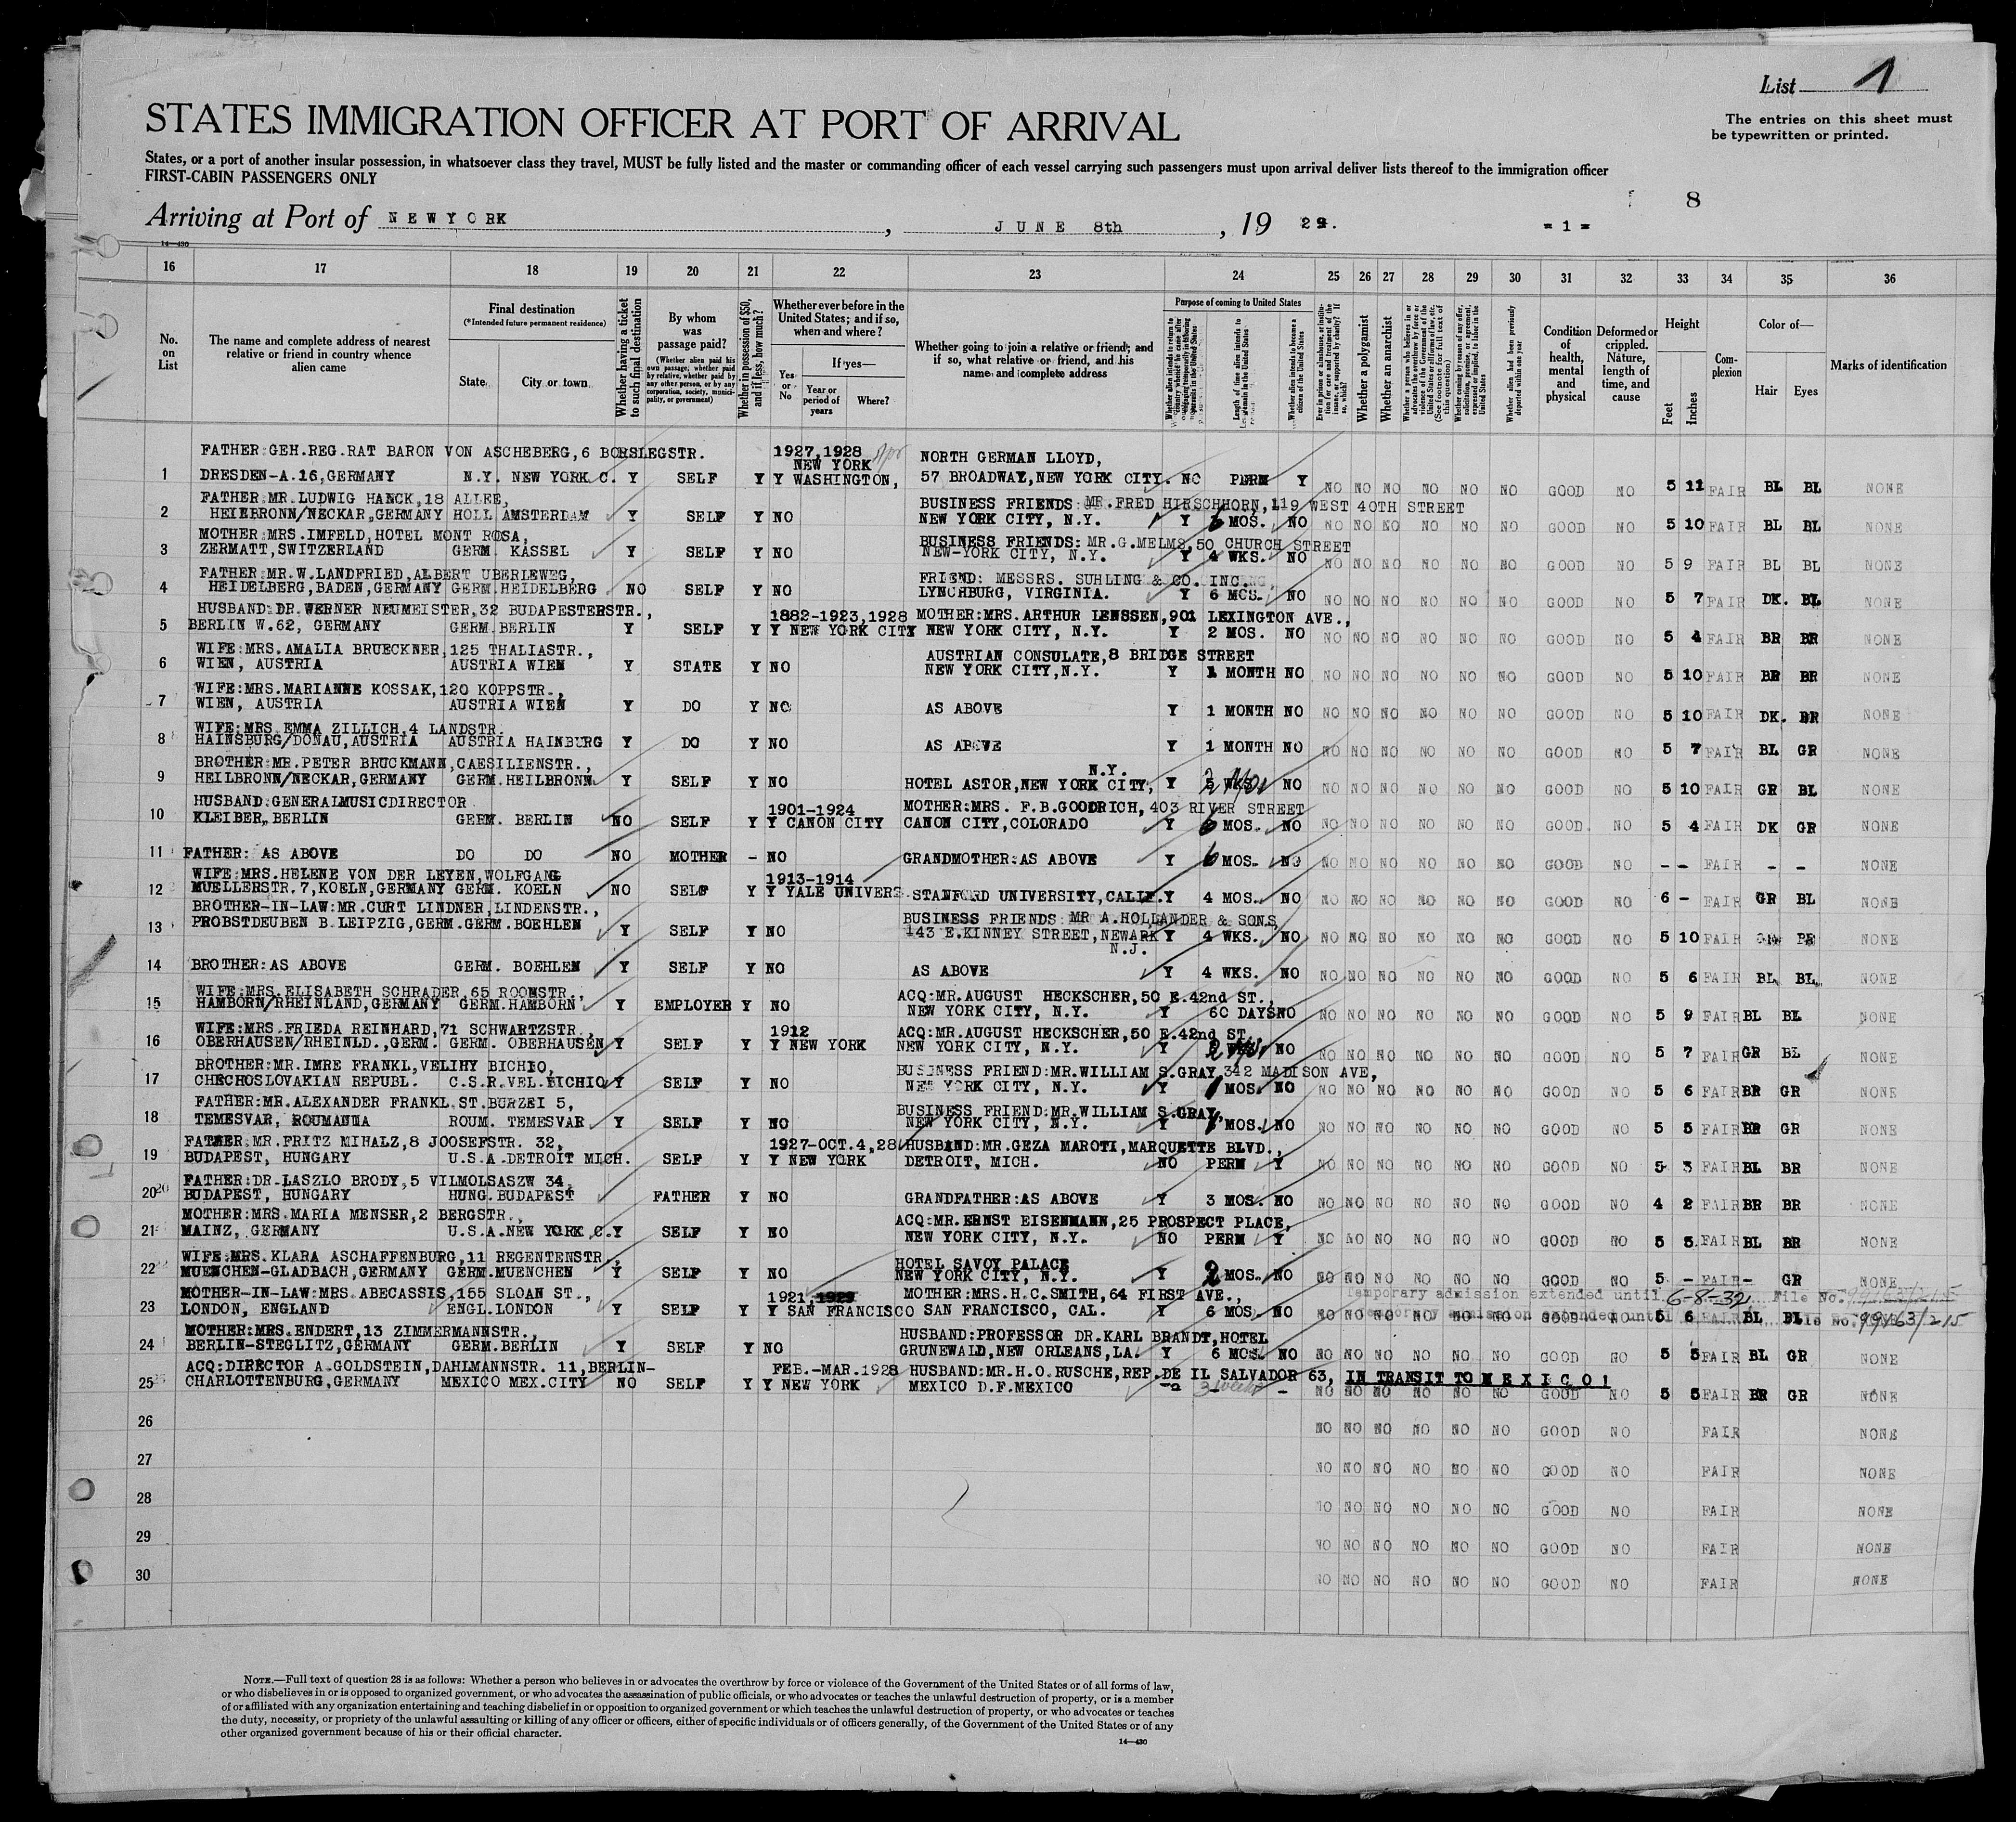 List 1
The entries on this sheet must
be typewritten or printed.
STATES IMMIGRATION OFFICER AT PORT OF ARRIVAL
States, or a port of another insular possession, in whatsoever class they travel, MUST be fully listed and the master or commanding officer of each vessel carrying such passengers must upon arrival deliver lists thereof to the immigration officer
FIRST-CABIN PASSENGERS ONLY
8
Arriving at Port of NEW YORK, JUNE 8th, 19 29. = 1 =
14—430
16 17 18 19 20 21 22 23 24 25 26 27 28 29 30 31 32 33 34 35 36
No. on List
The name and complete address of nearest relative or friend in country whence alien came
Final destination
(*Intended future permanent residence)
State City or town
Whether having a ticket to such final destination
By whom was passage paid?
(Whether alien paid his own passage, whether paid by relative, whether paid by any other person, or by any corporation, society, municipality, or government)
Whether in possession of $50, and if less, how much?
Whether ever before in the United States; and if so, when and where?
Yes or No
If yes—
Year or period of years
Where?
Whether going to join a relative or friend; and if so, what relative or friend, and his name and complete address
Purpose of coming to United States
Length of time alien intends to remain in the United States
Whether alien intends to become a citizen of the United States
Whether a polygamist
Whether an anarchist
Condition of health, mental and physical
Deformed or crippled. Nature, length of time, and cause
Height
Feet Inches
Complexion
Color of—
Hair Eyes
Marks of identification
FATHER:GEH.REG.RAT BARON VON ASCHEBERG,6 BORSLEGSTR. 1927,1928 NEW YORK NORTH GERMAN LLOYD,
1 DRESDEN-A.16,GERMANY N.Y. NEW YORK C. Y SELF Y Y WASHINGTON, 57 BROADWAY,NEW YORK CITY. NO PERM Y NO NO NO NO NO NO GOOD NO 5 11 FAIR BL BL NONE
FATHER:MR.LUDWIG HANCK,18 ALLEE, BUSINESS FRIENDS:MR.FRED HIRSCHHORN,119 WEST 40TH STREET
2 HEILBRONN/NECKAR,GERMANY HOLL AMSTERDAM Y SELF Y NO NEW YORK CITY, N.Y. Y 6 MOS. NO NO NO NO NO NO NO GOOD NO 5 10 FAIR BL BL NONE
MOTHER:MRS.IMFELD,HOTEL MONT ROSA, BUSINESS FRIENDS:MR.G.MELMS,50 CHURCH STREET
3 ZERMATT,SWITZERLAND GERM. KASSEL Y SELF Y NO NEW-YORK CITY, N.Y. Y 4 WKS. NO NO NO NO NO NO NO GOOD NO 5 9 FAIR BL BL NONE
FATHER:MR.W.LANDFRIED,ALBERT UBERLEWEG, FRIEND: MESSRS. SUHLING & CO. INC.
4 HEIDELBERG,BADEN,GERMANY GERM.HEIDELBERG NO SELF Y NO LYNCHBURG, VIRGINIA. Y 6 MOS. NO NO NO NO NO NO NO GOOD NO 5 7 FAIR DK. BL NONE
HUSBAND:DR.WERNER NEUMEISTER,32 BUDAPESTERSTR., 1882-1923,1928 MOTHER:MRS.ARTHUR LENSSEN,901 LEXINGTON AVE.,
5 BERLIN W.62, GERMANY GERM.BERLIN Y SELF Y Y NEW YORK CITY NEW YORK CITY, N.Y. Y 2 MOS. NO NO NO NO NO NO NO GOOD NO 5 4 FAIR BR BR NONE
WIFE:MRS.AMALIA BRUECKNER,125 THALIASTR., AUSTRIAN CONSULATE,8 BRIDGE STREET
6 WIEN, AUSTRIA AUSTRIA WIEN Y STATE Y NO NEW YORK CITY,N.Y. Y 1 MONTH NO NO NO NO NO NO NO GOOD NO 5 10 FAIR BR BR NONE
WIFE:MRS.MARIANNE KOSSAK,120 KOPPSTR.,
7 WIEN, AUSTRIA AUSTRIA WIEN Y DO Y NO AS ABOVE Y 1 MONTH NO NO NO NO NO NO NO GOOD NO 5 10 FAIR DK. BR NONE
WIFE:MRS.EMMA ZILLICH,4 LANDSTR.
8 HAINSBURG/DONAU,AUSTRIA AUSTRIA HAINBURG Y DO Y NO AS ABOVE Y 1 MONTH NO NO NO NO NO NO NO GOOD NO 5 7 FAIR BL GR NONE
BROTHER:MR.PETER BRUCKMANN,CAESILIENSTR., N.Y.
9 HEILBRONN/NECKAR,GERMANY GERM.HEILBRONN Y SELF Y NO HOTEL ASTOR,NEW YORK CITY, Y 5 WKS. NO NO NO NO NO NO NO GOOD NO 5 10 FAIR GR BL NONE
HUSBAND:GENERALMUSICDIRECTOR 1901-1924 MOTHER:MRS. F.B.GOODRICH,403 RIVER STREET
10 KLEIBER,BERLIN GERM. BERLIN NO SELF Y Y CANON CITY CANON CITY,COLORADO Y 6 MOS. NO NO NO NO NO NO NO GOOD. NO 5 4 FAIR DK GR NONE
11 FATHER: AS ABOVE DO DO NO MOTHER - NO GRANDMOTHER:AS ABOVE Y 6 MOS. NO NO NO NO NO NO NO GOOD NO - - FAIR - - NONE
WIFE:MRS.HELENE VON DER LEYEN,WOLFGANG 1913-1914
12 MUELLERSTR.7,KOELN,GERMANY GERM. KOELN NO SELF Y Y YALE UNIVERS. STANFORD UNIVERSITY,CALIF. Y 4 MOS. NO NO NO NO NO NO NO GOOD NO 6 - FAIR GR BL NONE
BROTHER-IN-LAW:MR.CURT LINDNER,LINDENSTR., BUSINESS FRIENDS:MR A.HOLLANDER & SONS
13 PROBSTDEUBEN B.LEIPZIG,GERM.GERM.BOEHLEN Y SELF Y NO 143 E.KINNEY STREET,NEWARK N.J. Y 4 WKS. NO NO NO NO NO NO NO GOOD NO 5 10 FAIR NONE
14 BROTHER:AS ABOVE GERM. BOEHLEN Y SELF Y NO AS ABOVE Y 4 WKS. NO NO NO NO NO NO NO GOOD NO 5 6 FAIR BL BL NONE
WIFE:MRS.ELISABETH SCHRADER,65 ROONSTR., ACQ:MR.AUGUST HECKSCHER,50 E.42nd ST.,
15 HAMBORN/RHEINLAND,GERMANY GERM.HAMBORN Y EMPLOYER Y NO NEW YORK CITY, N.Y. Y 60 DAYS NO NO NO NO NO NO NO GOOD NO 5 9 FAIR BL BL NONE
WIFE:MRS.FRIEDA REINHARD,71 SCHWARTZSTR., 1912 ACQ:MR.AUGUST HECKSCHER,50 E.42nd ST.
16 OBERHAUSEN/RHEINLD.,GERM. GERM. OBERHAUSEN Y SELF Y Y NEW YORK NEW YORK CITY, N.Y. Y 2 NO NO NO NO NO NO NO GOOD NO 5 7 FAIR GR BL NONE
BROTHER:MR.IMRE FRANKL,VELIHY BICHIO, BUSINESS FRIEND:MR.WILLIAM S.GRAY,342 MADISON AVE,
17 CHECHOSLOVAKIAN REPUBL. C.S.R.VEL.BICHIO Y SELF Y NO NEW YORK CITY, N.Y. Y 1 MOS. NO NO NO NO NO NO NO GOOD NO 5 6 FAIR BR GR NONE
FATHER:MR.ALEXANDER FRANKL.ST.BURZEI 5, BUSINESS FRIEND:MR.WILLIAM S.GRAY,
18 TEMESVAR, ROUMANIA ROUM. TEMESVAR Y SELF Y NO NEW YORK CITY, N.Y. Y 1 MOS. NO NO NO NO NO NO NO GOOD NO 5 5 FAIR BR GR NONE
FATHER:MR.FRITZ MIHALZ,8 JOOSEFSTR. 32, 1927-OCT.4,28 HUSBAND:MR.GEZA MAROTI,MARQUETTE BLVD.,
19 BUDAPEST, HUNGARY U.S.A.DETROIT MICH. SELF Y Y NEW YORK DETROIT, MICH. NO PERM Y NO NO NO NO NO NO GOOD NO 5 3 FAIR BL BR NONE
FATHER:DR.LASZLO BRODY,5 VILMOLSASZW 34,
20 BUDAPEST, HUNGARY HUNG.BUDAPEST FATHER Y NO GRANDFATHER:AS ABOVE Y 3 MOS. NO NO NO NO NO NO NO GOOD NO 4 2 FAIR BR BR NONE
MOTHER:MRS.MARIA MENSER,2 BERGSTR., ACQ:MR.ERNST EISENMANN,25 PROSPECT PLACE,
21 MAINZ, GERMANY U.S.A.NEW YORK C. Y SELF Y NO NEW YORK CITY, N.Y. NO PERM Y NO NO NO NO NO NO GOOD NO 5 5 FAIR BL BR NONE
WIFE:MRS.KLARA ASCHAFFENBURG,11 REGENTENSTR., HOTEL SAVOY PALACE
22 MUENCHEN-GLADBACH,GERMANY GERM.MUENCHEN Y SELF Y NO NEW YORK CITY, N.Y. Y 2 MOS. NO NO NO NO NO NO NO GOOD NO 5 - FAIR - GR NONE
MOTHER-IN-LAW:MRS.ABECASSIS,155 SLOAN ST., 1921, 1929 MOTHER:MRS.H.C.SMITH,64 FIRST AVE., Temporary admission extended until 6-8-32 File No. 99463/215
23 LONDON, ENGLAND ENGL.LONDON Y SELF Y Y SAN FRANCISCO SAN FRANCISCO, CAL. Y 6 MOS. NO NO NO NO NO NO NO GOOD NO 5 6 FAIR BL BL File No. 99463/215
MOTHER:MRS.ENDERT,13 ZIMMERMANNSTR., HUSBAND:PROFESSOR DR.KARL BRANDT,HOTEL
24 BERLIN-STEGLITZ,GERMANY GERM.BERLIN Y SELF Y NO GRUNEWALD,NEW ORLEANS,LA. Y 6 MOS. NO NO NO NO NO NO NO GOOD NO 5 5 FAIR BL GR NONE
ACQ:DIRECTOR A.GOLDSTEIN,DAHLMANNSTR. 11,BERLIN- FEB.-MAR.1928 HUSBAND:MR.H.O.RUSCHE,REP.DE IL SALVADOR 63, IN TRANSIT TO M E X I C O !
25 CHARLOTTENBURG,GERMANY MEXICO MEX.CITY NO SELF Y Y NEW YORK MEXICO D.F.MEXICO 3 weeks - NO NO NO NO NO NO GOOD NO 5 5 FAIR BR GR NONE
26 NO NO NO NO NO NO GOOD NO FAIR NONE
27 NO NO NO NO NO NO GOOD NO FAIR NONE
28 NO NO NO NO NO NO GOOD NO FAIR NONE
29 NO NO NO NO NO NO GOOD NO FAIR NONE
30 NO NO NO NO NO NO GOOD NO FAIR NONE
NOTE.—Full text of question 28 is as follows: Whether a person who believes in or advocates the overthrow by force or violence of the Government of the United States or of all forms of law,
or who disbelieves in or is opposed to organized government, or who advocates the assassination of public officials, or who advocates or teaches the unlawful destruction of property, or is a member
of or affiliated with any organization entertaining and teaching disbelief in or opposition to organized government or which teaches the unlawful destruction of property, or who advocates or teaches
the duty, necessity, or propriety of the unlawful assaulting or killing of any officer or officers, either of specific individuals or of officers generally, of the Government of the United States or of any
other organized government because of his or their official character.
14—430